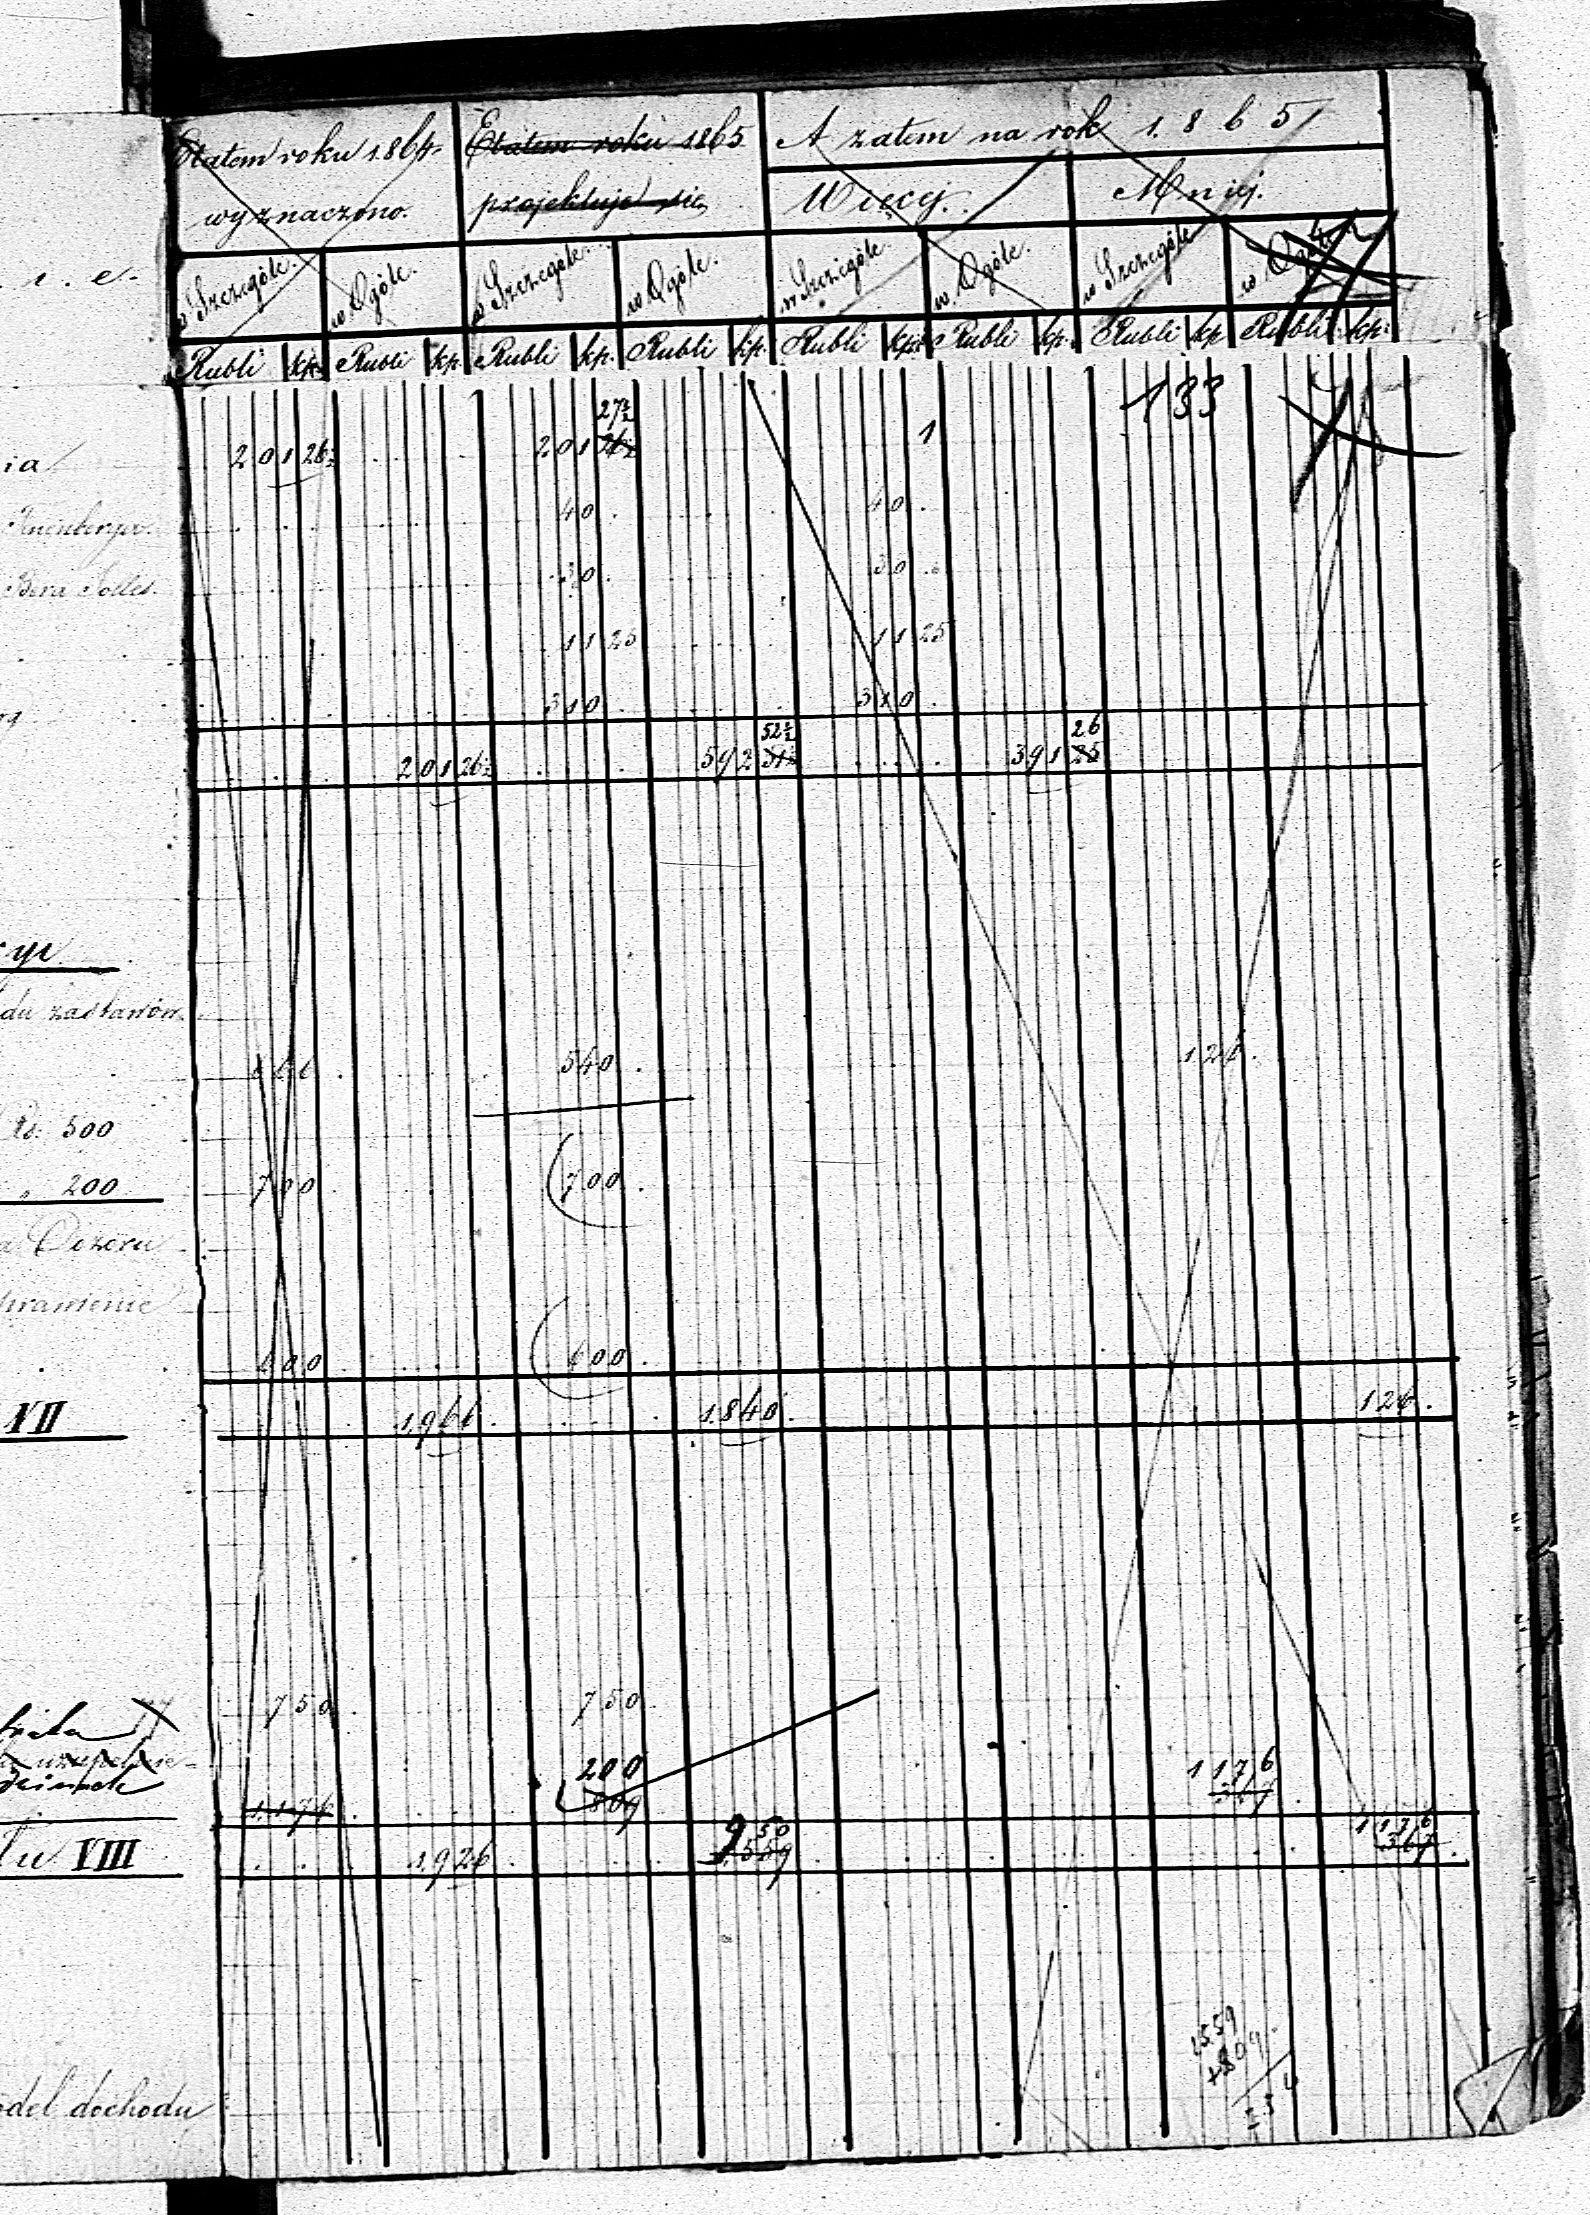 Etatem roku 1864 Etatem roku 1865 A zatem na rok 1865
wyznaczono. projektuje się Więcej. Mniej.
w Szczególe. w Ogóle. w Szczególe. w Ogóle. w Szczególe. w Ogóle. w Szczególe w Ogóle
Rubli kp. Rubli kp. Rubli kp. Rubli kp. Rubli kp. Rubli kp. Rubli kp Rubli kp.
133
27½
201 26½ 201 26½ 1
40 40
Bera
30 30
11 25 11 25
310 310
52½ 26
201 26½ 592 51½ 391 25
du zastawów
666 540 126
Rs. 500
" 200 700 700
600 600
VII 1966 1840 126
750 750
200 1176
1176 809 367
950 1176
VIII 1926 1559 367
1559
+809
dochodu